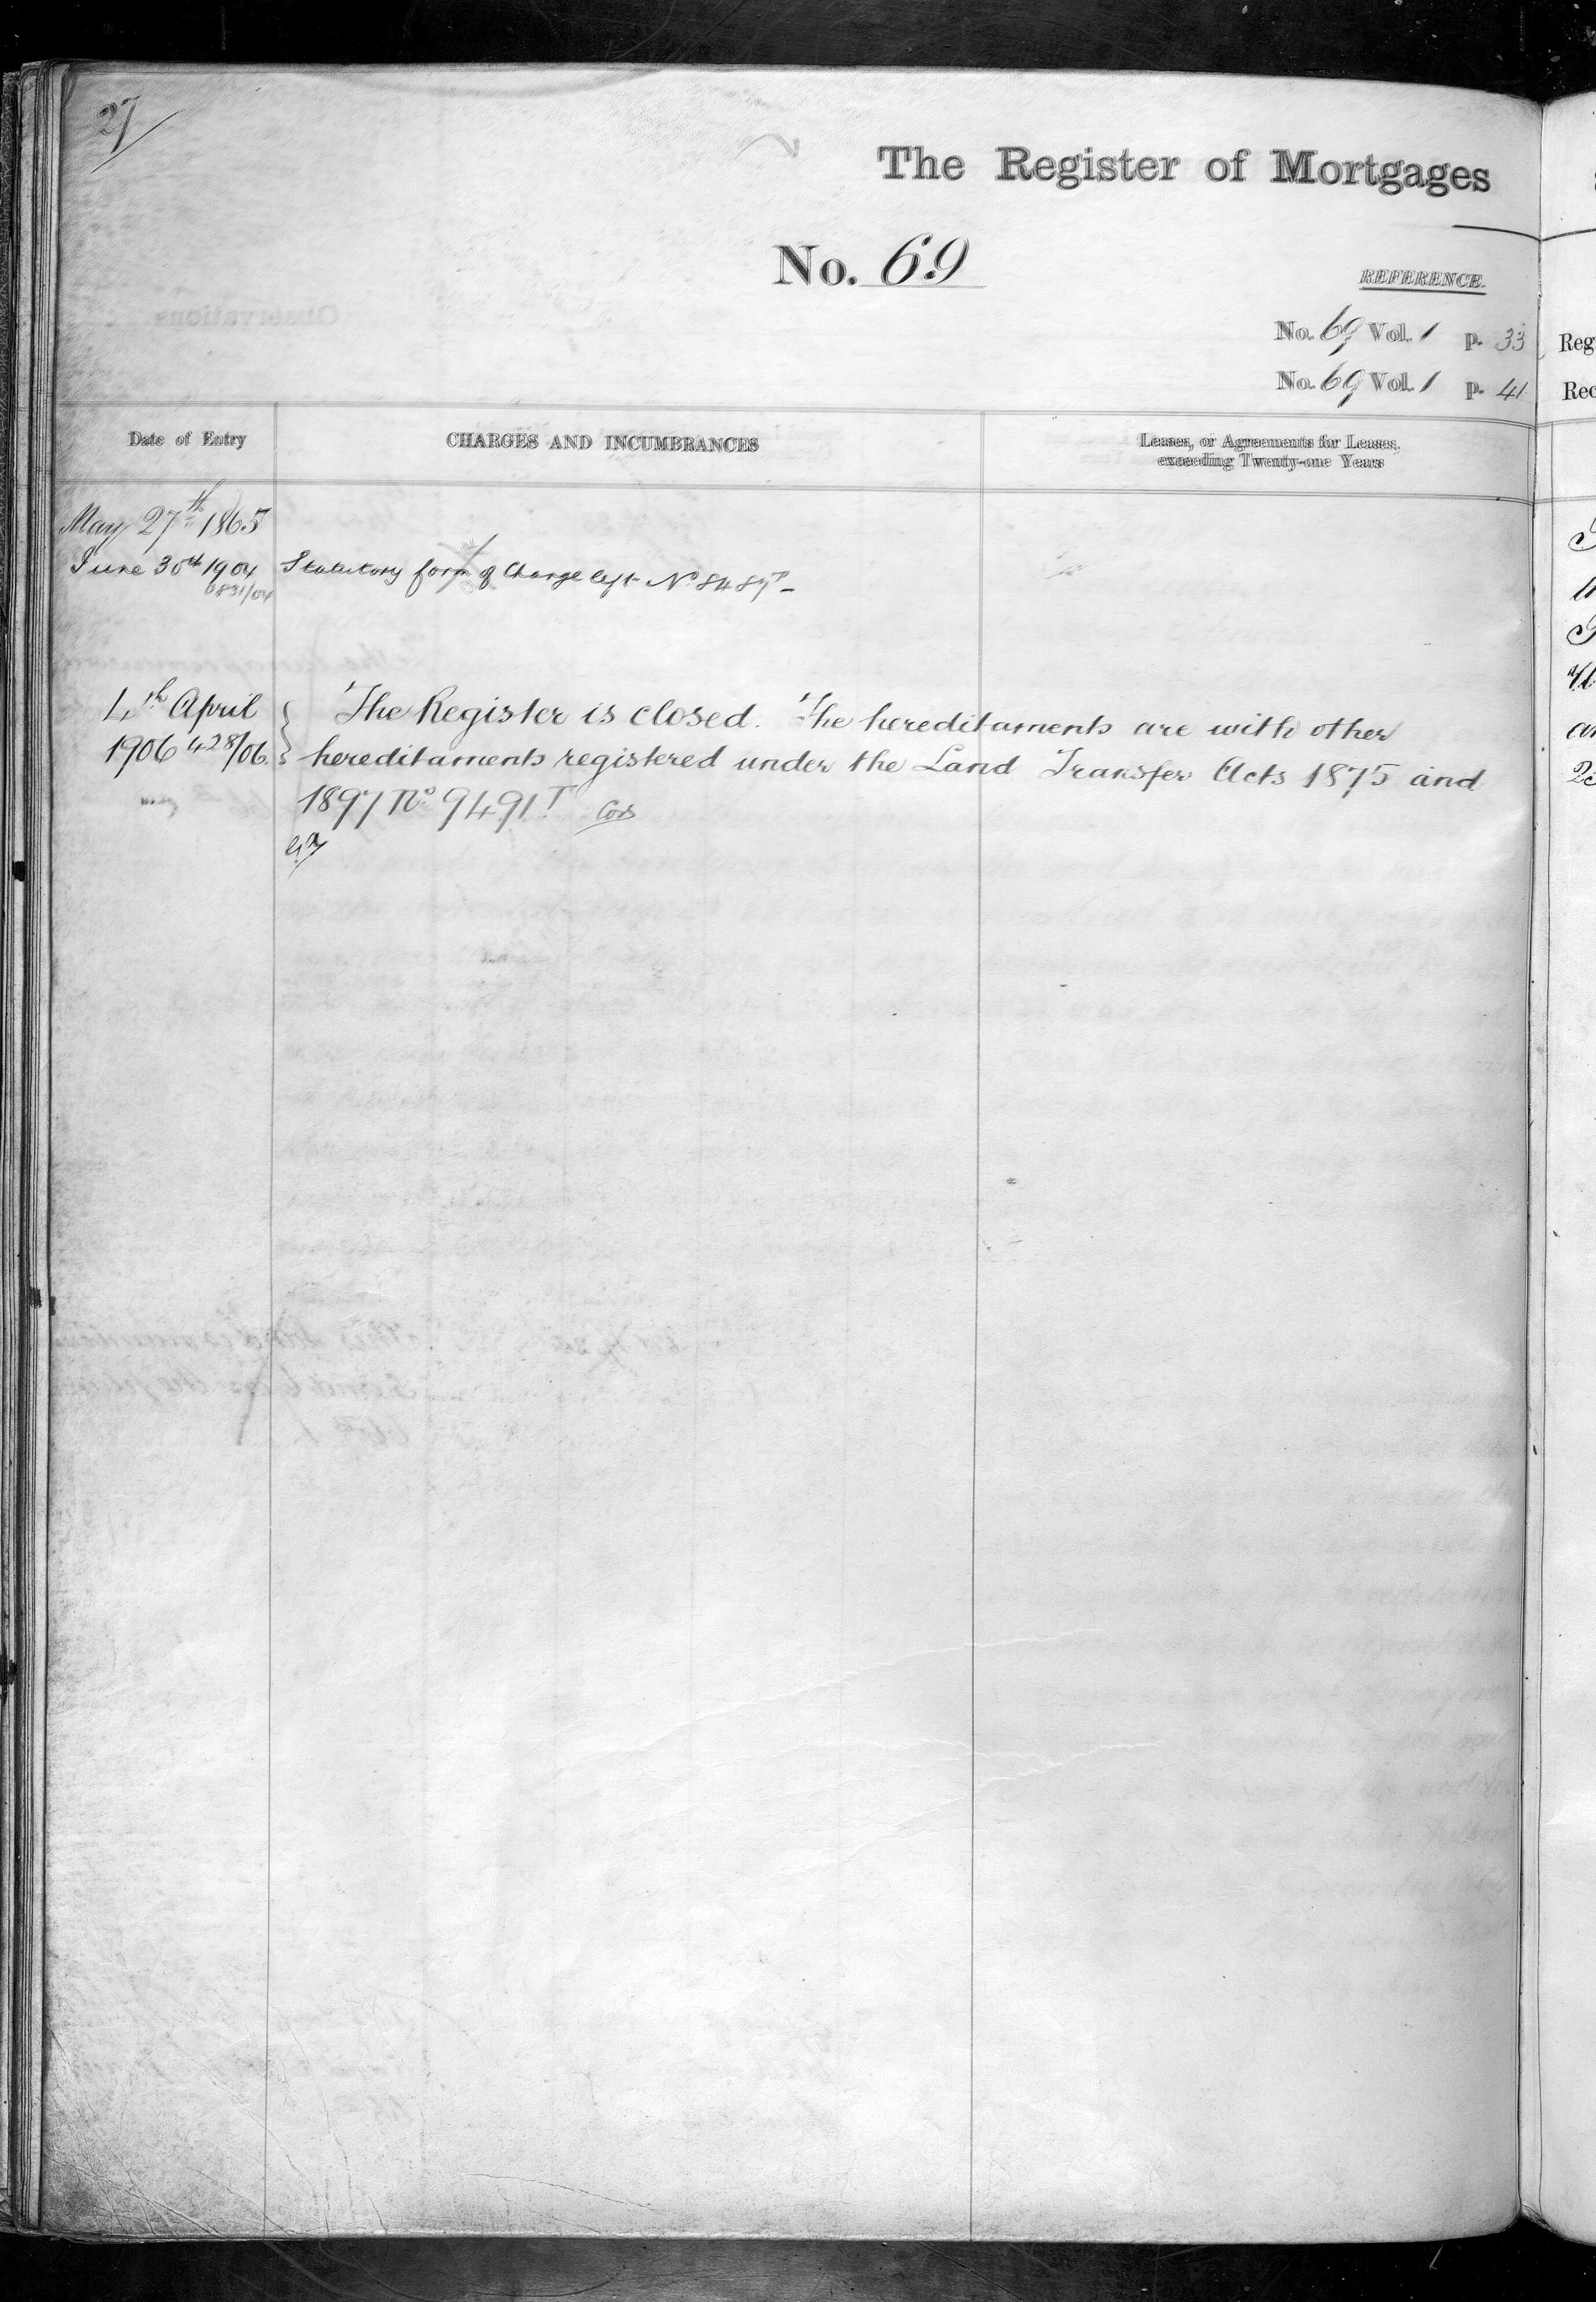 27
The Register of Mortgages
No. 69
REFERENCE.
No. 69 Vol. 1 p. 33
No. 69 Vol. 1 p. 41
Reg
Rec
Date of Entry
CHARGES AND INCUMBRANCES
Leases, or Agreements for Leases,
exceeding Twenty-one Years
May 27th 1865
June 30th 1904 Statutory form of Charge left No 8489T –
831/04
4th April The Register is closed. The hereditaments are with other
1906 428/06. hereditaments registered under the Land Transfer Acts 1875 and
1897 No 9491T